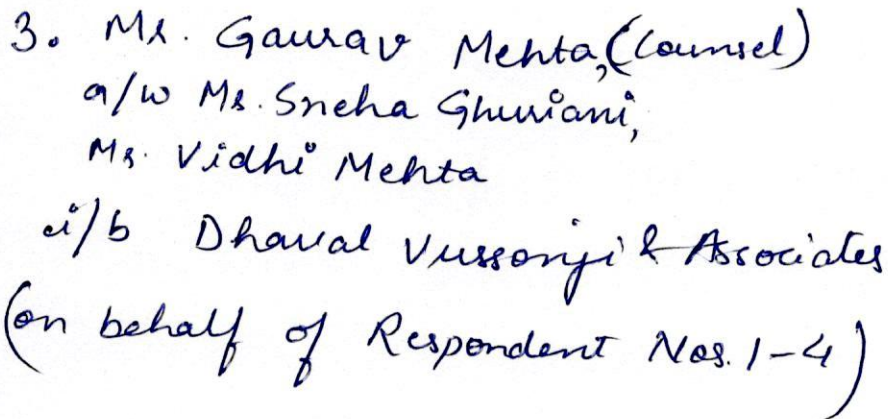 3. Mr. Gaurav Mehta, (Counsel)
a/w Ms. Sneha Ghuriani,
Ms. Vidhi Mehta
i/b Dhaval Vussonji & Associates
(on behalf of Respondent Nos. 1-4)